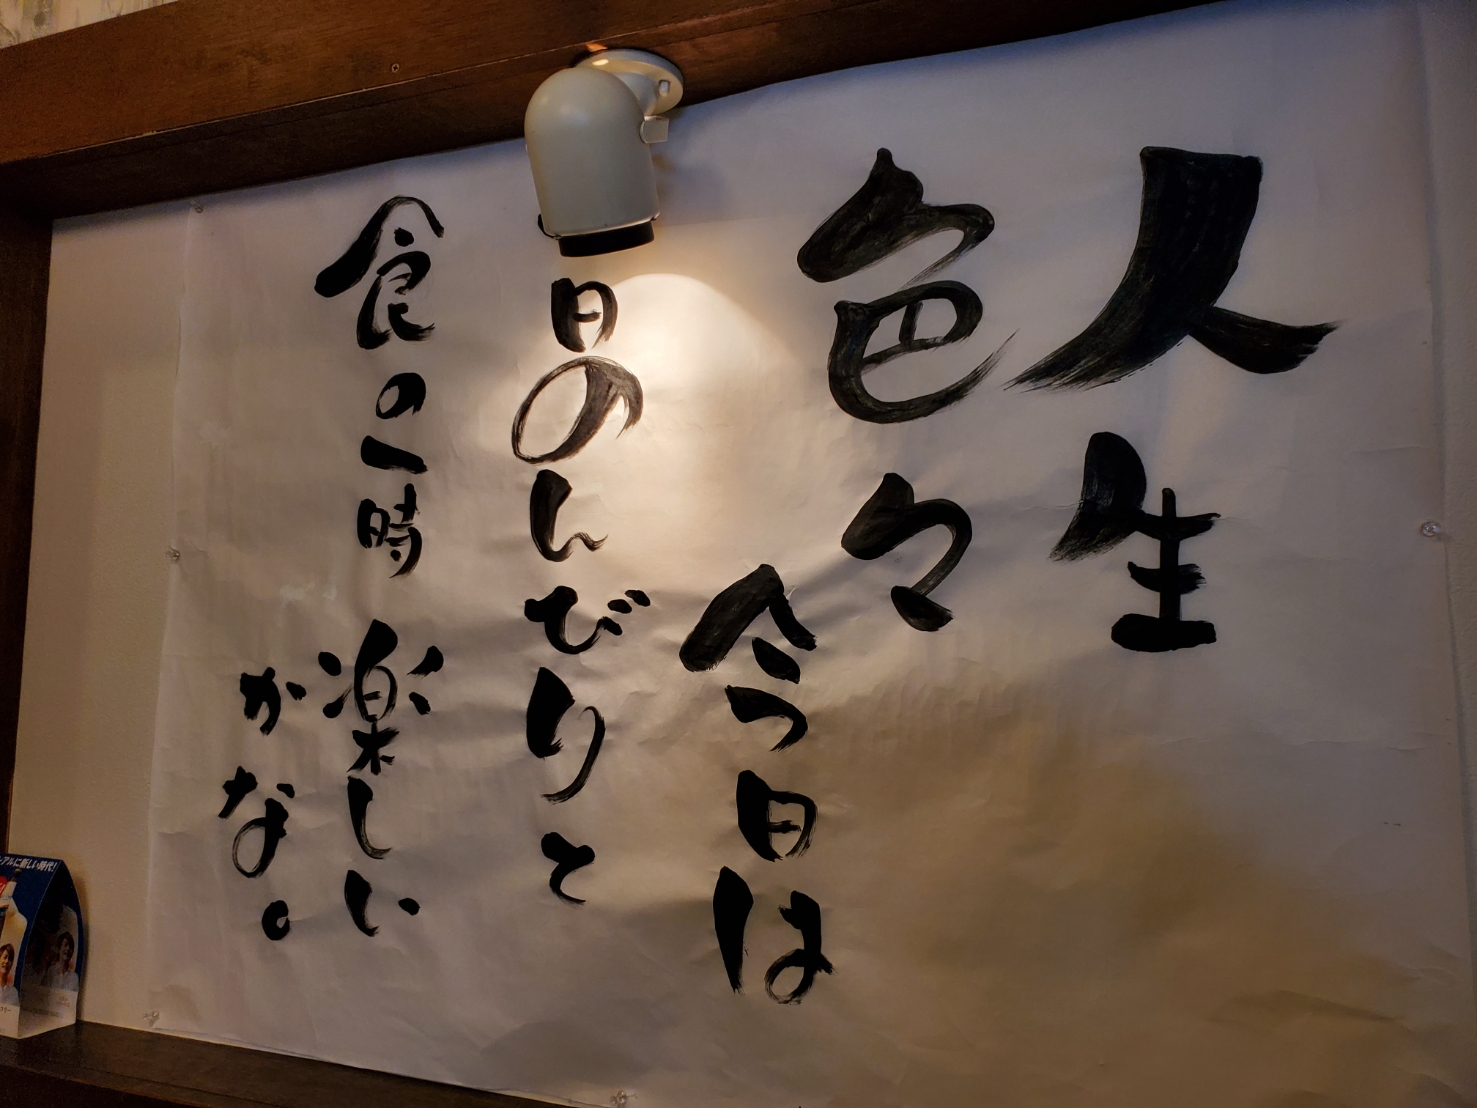 人生
色々
今日は
日のんびりと
食の一時 楽しい
かな。
アルに新しい時代!